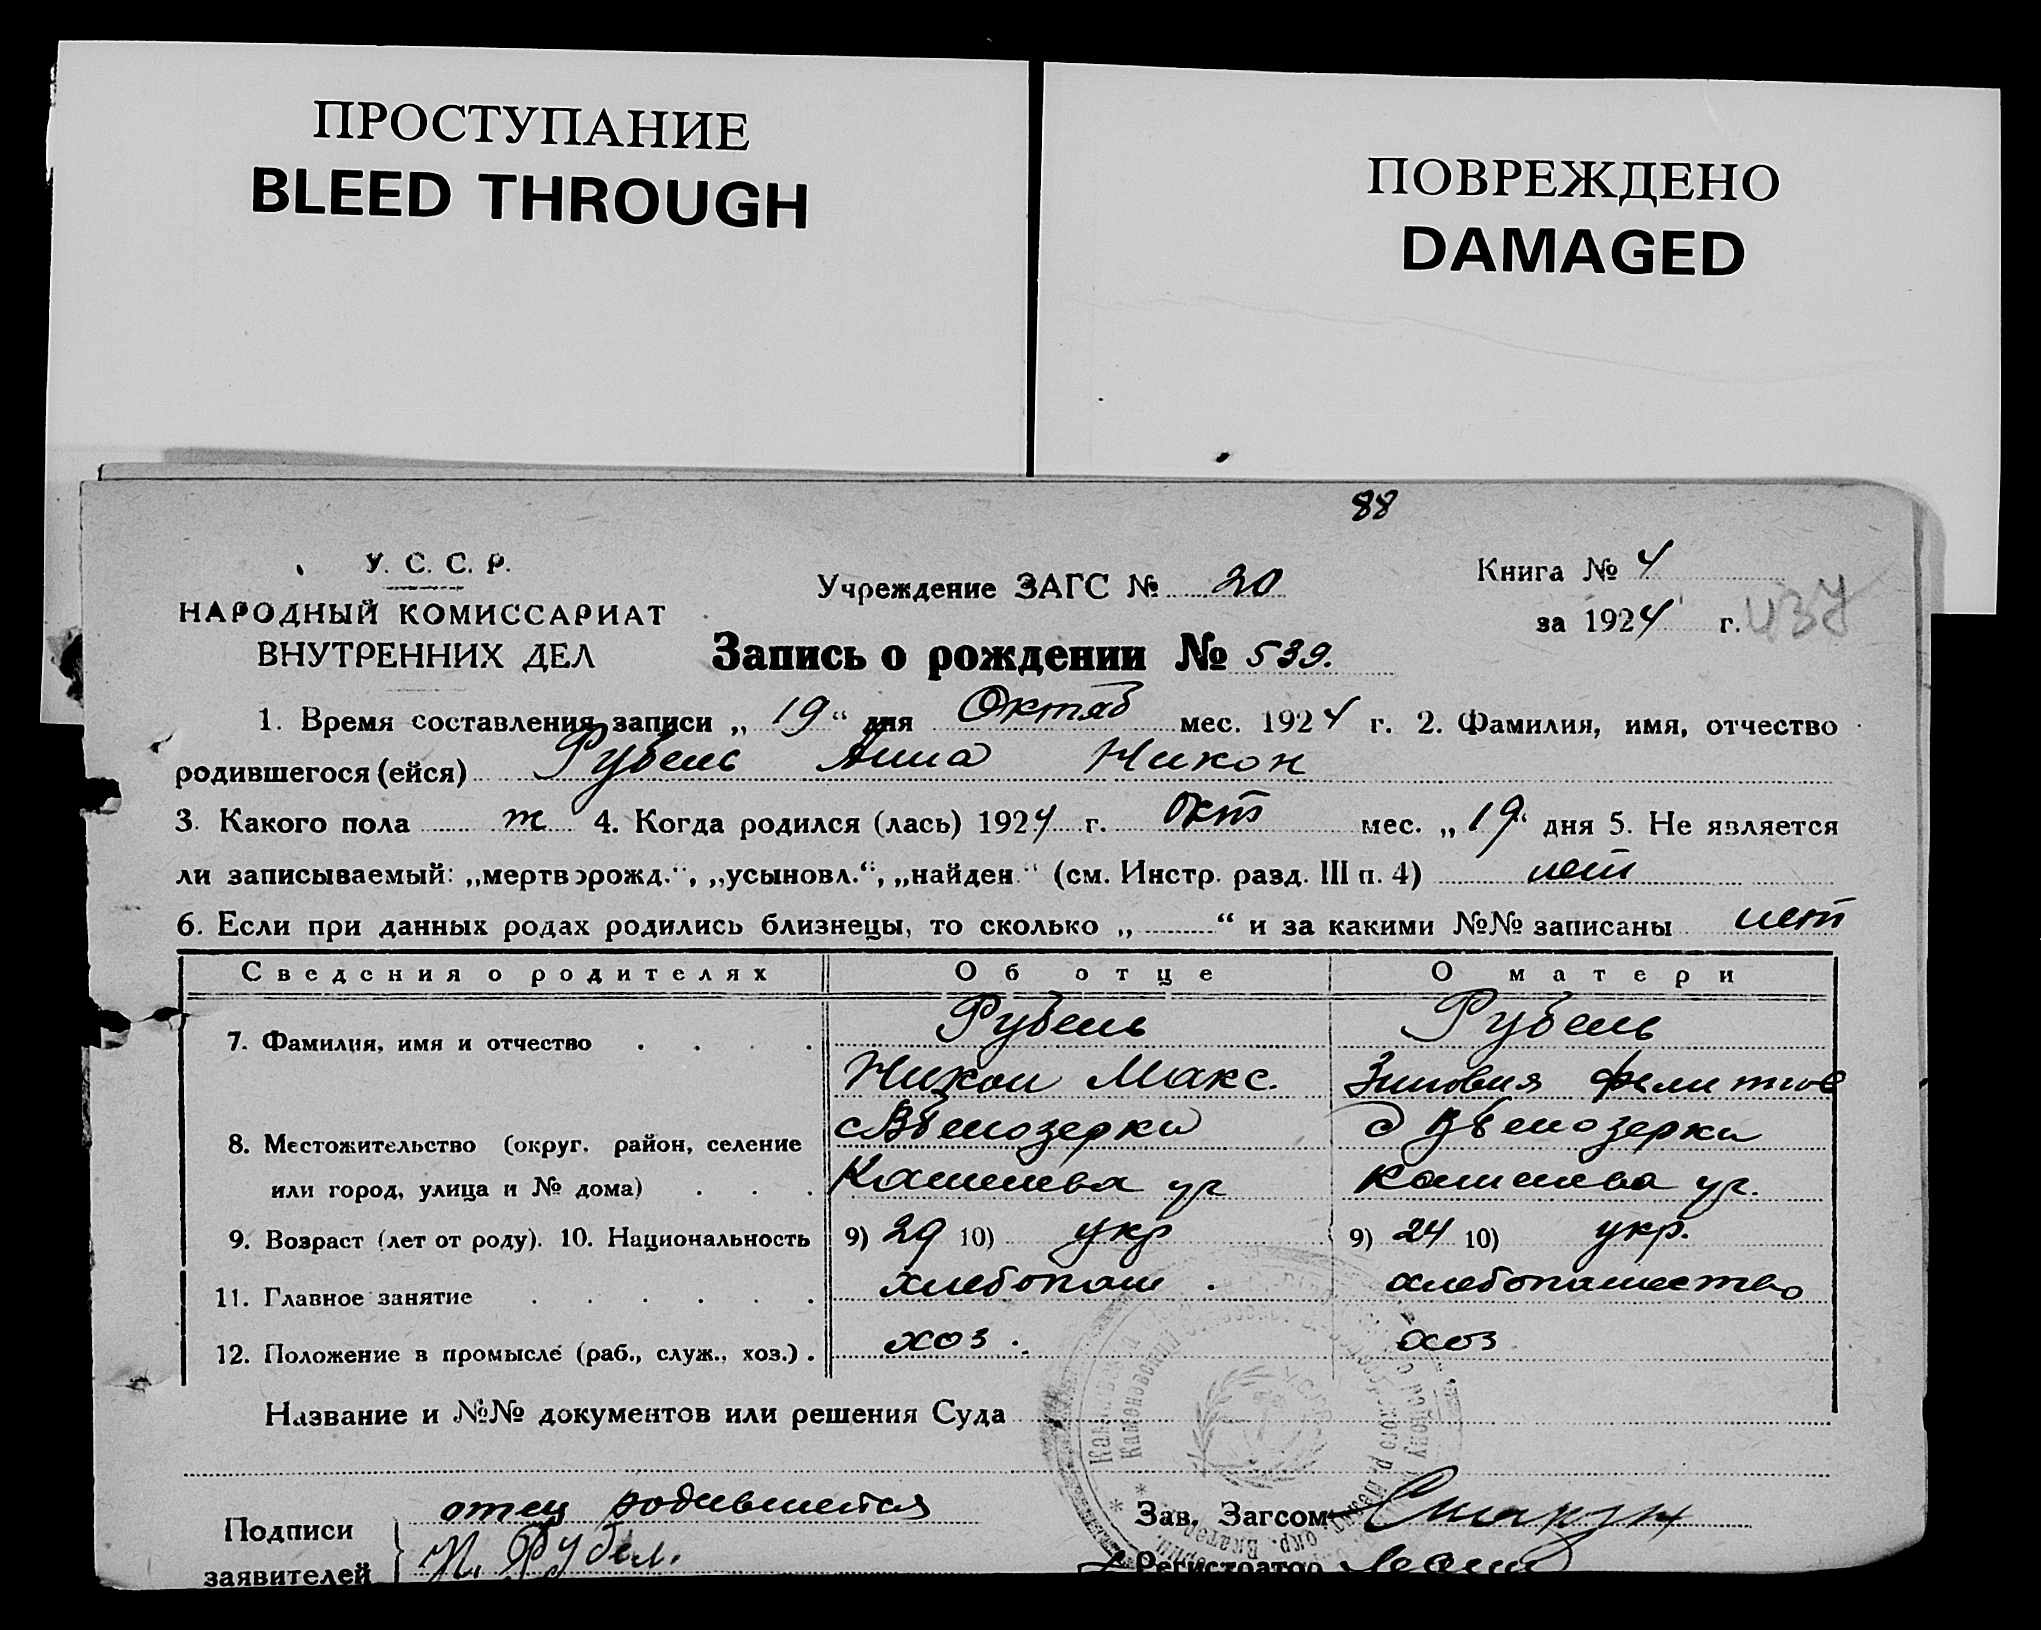 ПРОСТУПАНИЕ
BLEED THROUGH
ПОВРЕЖДЕНО
DAMAGED
88
У. С. С. Р.
НАРОДНЫЙ КОМИССАРИАТ
ВНУТРЕННИХ ДЕЛ
Учреждение ЗАГС № 20
Книга № 4
за 1924 г.
Запись о рождении № 539.
1. Время составления записи „ 19 “ дня Октяб мес. 1924 г. 2. Фамилия, имя, отчество
родившегося (ейся) Рубель Анна Никон
3. Какого пола ж 4. Когда родился (лась) 1924 г. окт мес. „ 19 “ дня 5. Не является
ли записываемый: „мертворожд.“, „усыновл.“, „найден.“ (см. Инстр. разд. III п. 4) нет
6. Если при данных родах родились близнецы, то сколько „ “ и за какими №№ записаны нет
Сведения о родителях Об отце О матери
7. Фамилия, имя и отчество . . . . Рубель Рубель
Никон Макс. Зиновия Филипов
8. Местожительство (округ, район, селение
или город, улица и № дома) . . . Каменева уг Каменева уг.
9. Возраст (лет от роду). 10. Национальность 9) 29 10) укр 9) 24 10) укр.
11. Главное занятие . . . . . . хлебопаш хлебопашество
12. Положение в промысле (раб., служ., хоз.) . хоз. хоз
Название и №№ документов или решения Суда
Подписи
заявителей
отец родившейся
Н. Рубел.
Зав. Загсом
Регистратор